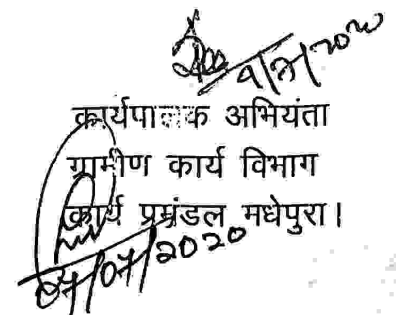 9/7/2020
कार्यपालक अभियंता
ग्रामीण कार्य विभाग
कार्य प्रमंडल मधेपुरा।
07/07/2020